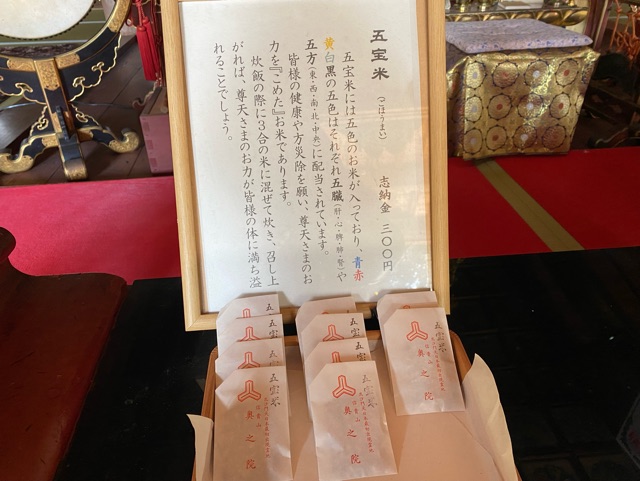 五宝米 (ごほうまい) 志納金 三〇〇円
五宝米には五色のお米が入っており、青赤
黄白黒の五色はそれぞれ五臓(肝・心・脾・肺・腎)や
五方(東・西・南・北・中央)に配当されています。
皆様の健康や方災除を願い、尊天さまのお
力を『こめた』お米であります。
炊飯の際に3合の米に混ぜて炊き、召し上
がれば、尊天さまのお力が皆様の体に満ち溢
れることでしょう。
五宝米
五宝米
五宝米
五宝米
奥之院
五宝米
奥之院
五宝米
奥之院